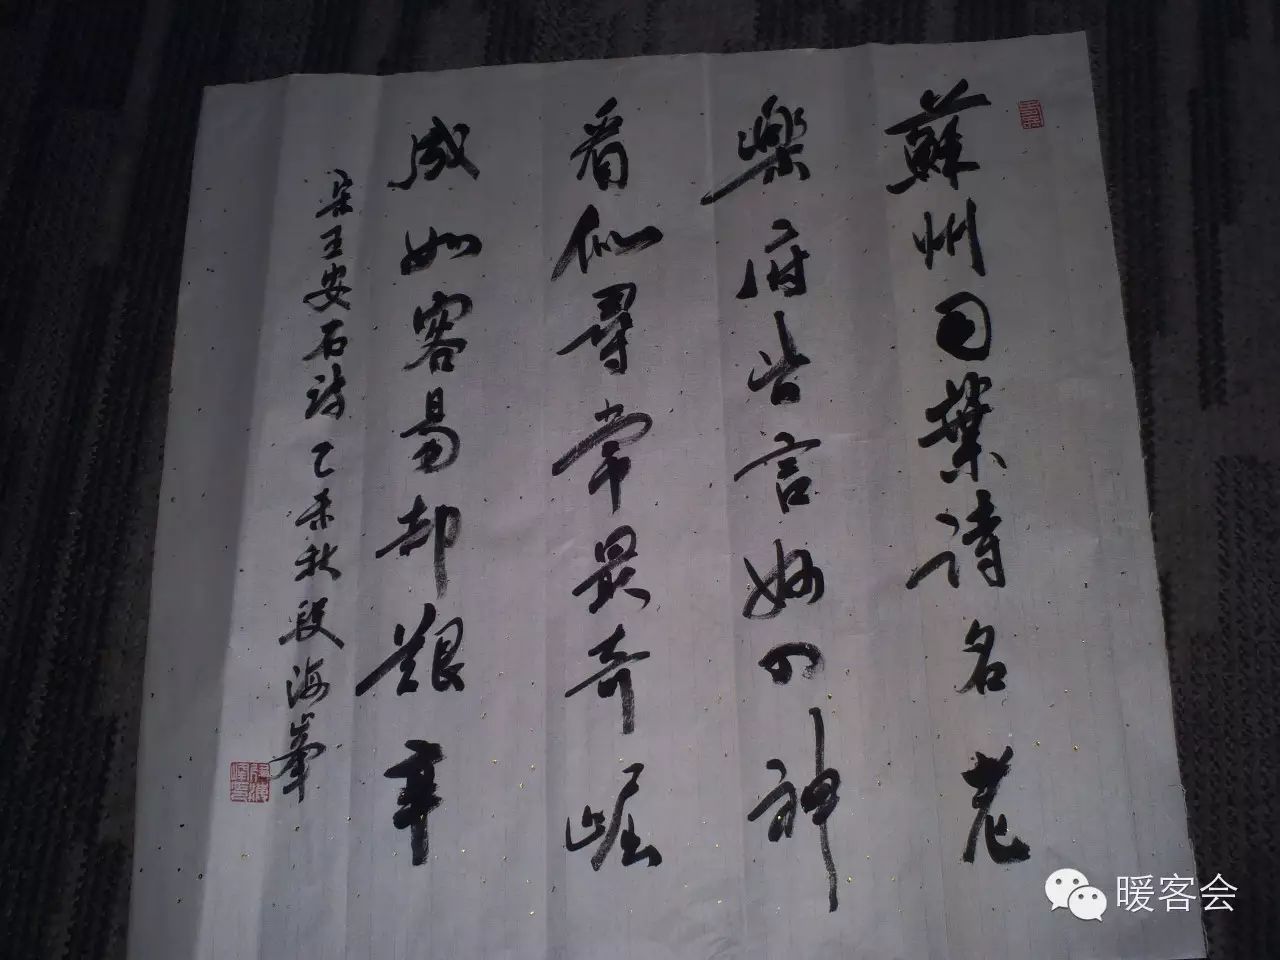 蘇州司業詩名老
樂府皆言妙入神
看似尋常最奇崛
成如容易却艱辛
宋王安石詩乙未秋段海峯
暖客会